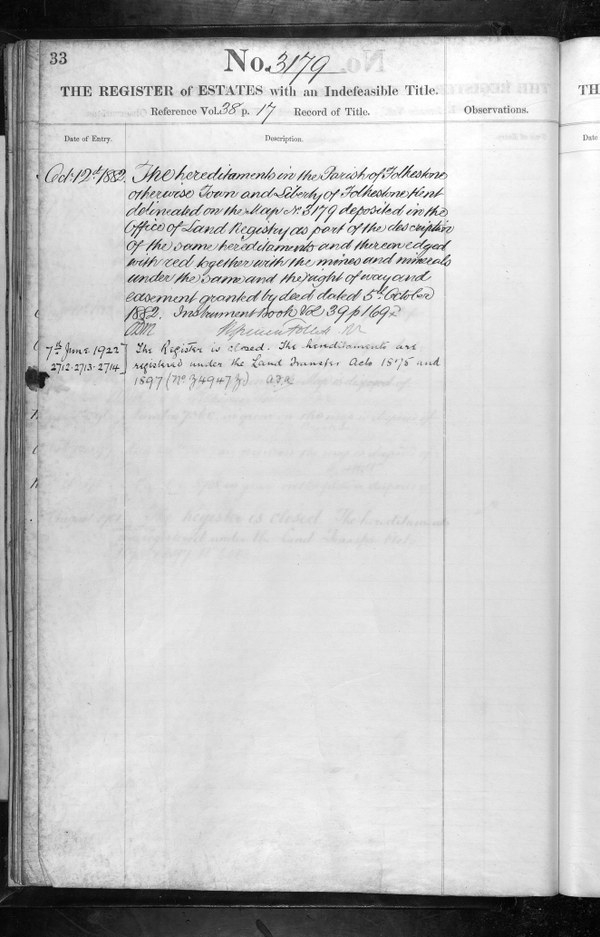 33
No. 3179
THE REGISTER of ESTATES with an Indefeasible Title.
Reference Vol. 38 p. 17 Record of Title. Observations.
Date of Entry. Description.
Oct. 12th 1882. The hereditaments in the Parish of Folkestone
otherwise Town and Liberty of Folkestone Kent
delineated on the Map No. 3179 deposited in the
Office of Land Registry as part of the description
of the same hereditaments and thereon edged
with red together with the mines and minerals
under the same and the right of way and
easement granted by deed dated 5th October
1882. Instrument Book Vol 39 p 169
7th June 1922 The Register is closed. The hereditaments are
2712-2713-2714 registered under the Land Transfer Acts 1875 and
1897 (No
TH
Date